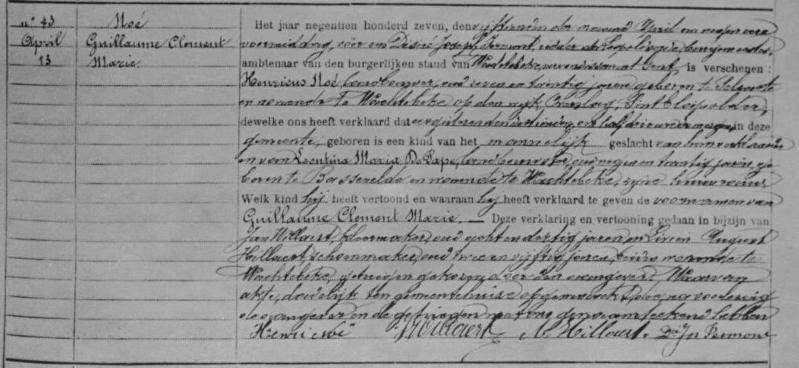 n° 43
April
13
Noé
Guillaume Clement
Marie
Het jaar negentien honderd zeven, den vijftienden der maand April om negen ure
voormiddag, vóór ons Désiré Joseph Fremont,
ambtenaar van den burgerlijken stand van Wachtebeke, arrondissement Gent, is verschenen:
Henricus Noé, landbouwer, oud zeven en twintig jaren, geboren te Selzaete
en wonende te Wachtebeke op den wijk
dewelke ons heeft verklaard dat op ten half drie ure 's morgens in deze
gemeente, geboren is een kind van het mannelijk geslacht van hem verklaarder
en van Leontina Maria De Pape, landbouwster, oud negen en twintig jaren, ge-
boren te Bassevelde en wonende te Wachtebeke, zijne huisvrouw
Welk kind hij heeft vertoond en waaraan hij heeft verklaard te geven de voornamen van
Guillaume Clement Marie. — Deze verklaring en vertooning gedaan in bijzijn van
Jan Willaert, kleermaker, oud acht en dertig jaren, en Livien August
Hillaert, schoenmaker, oud twee en vijftig jaren, beiden wonende te
Wachtebeke, getuigen gekozen door den aangever. Waarvan
akte, dadelijk ten gemeentehuize opgemaakt,
de aangever en de getuigen met ons geteekend hebben
Henri Noé Willaert A. Hillaert. Dr J. Fremont